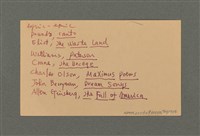 lyric-epic
Pound, Cantos
Eliot, The Waste Land
Williams, Paterson
Crane, The Bridge
Charles Olson, Maximus Poems
John Berryman, Dream Songs
Allen Ginsberg, The Fall of America